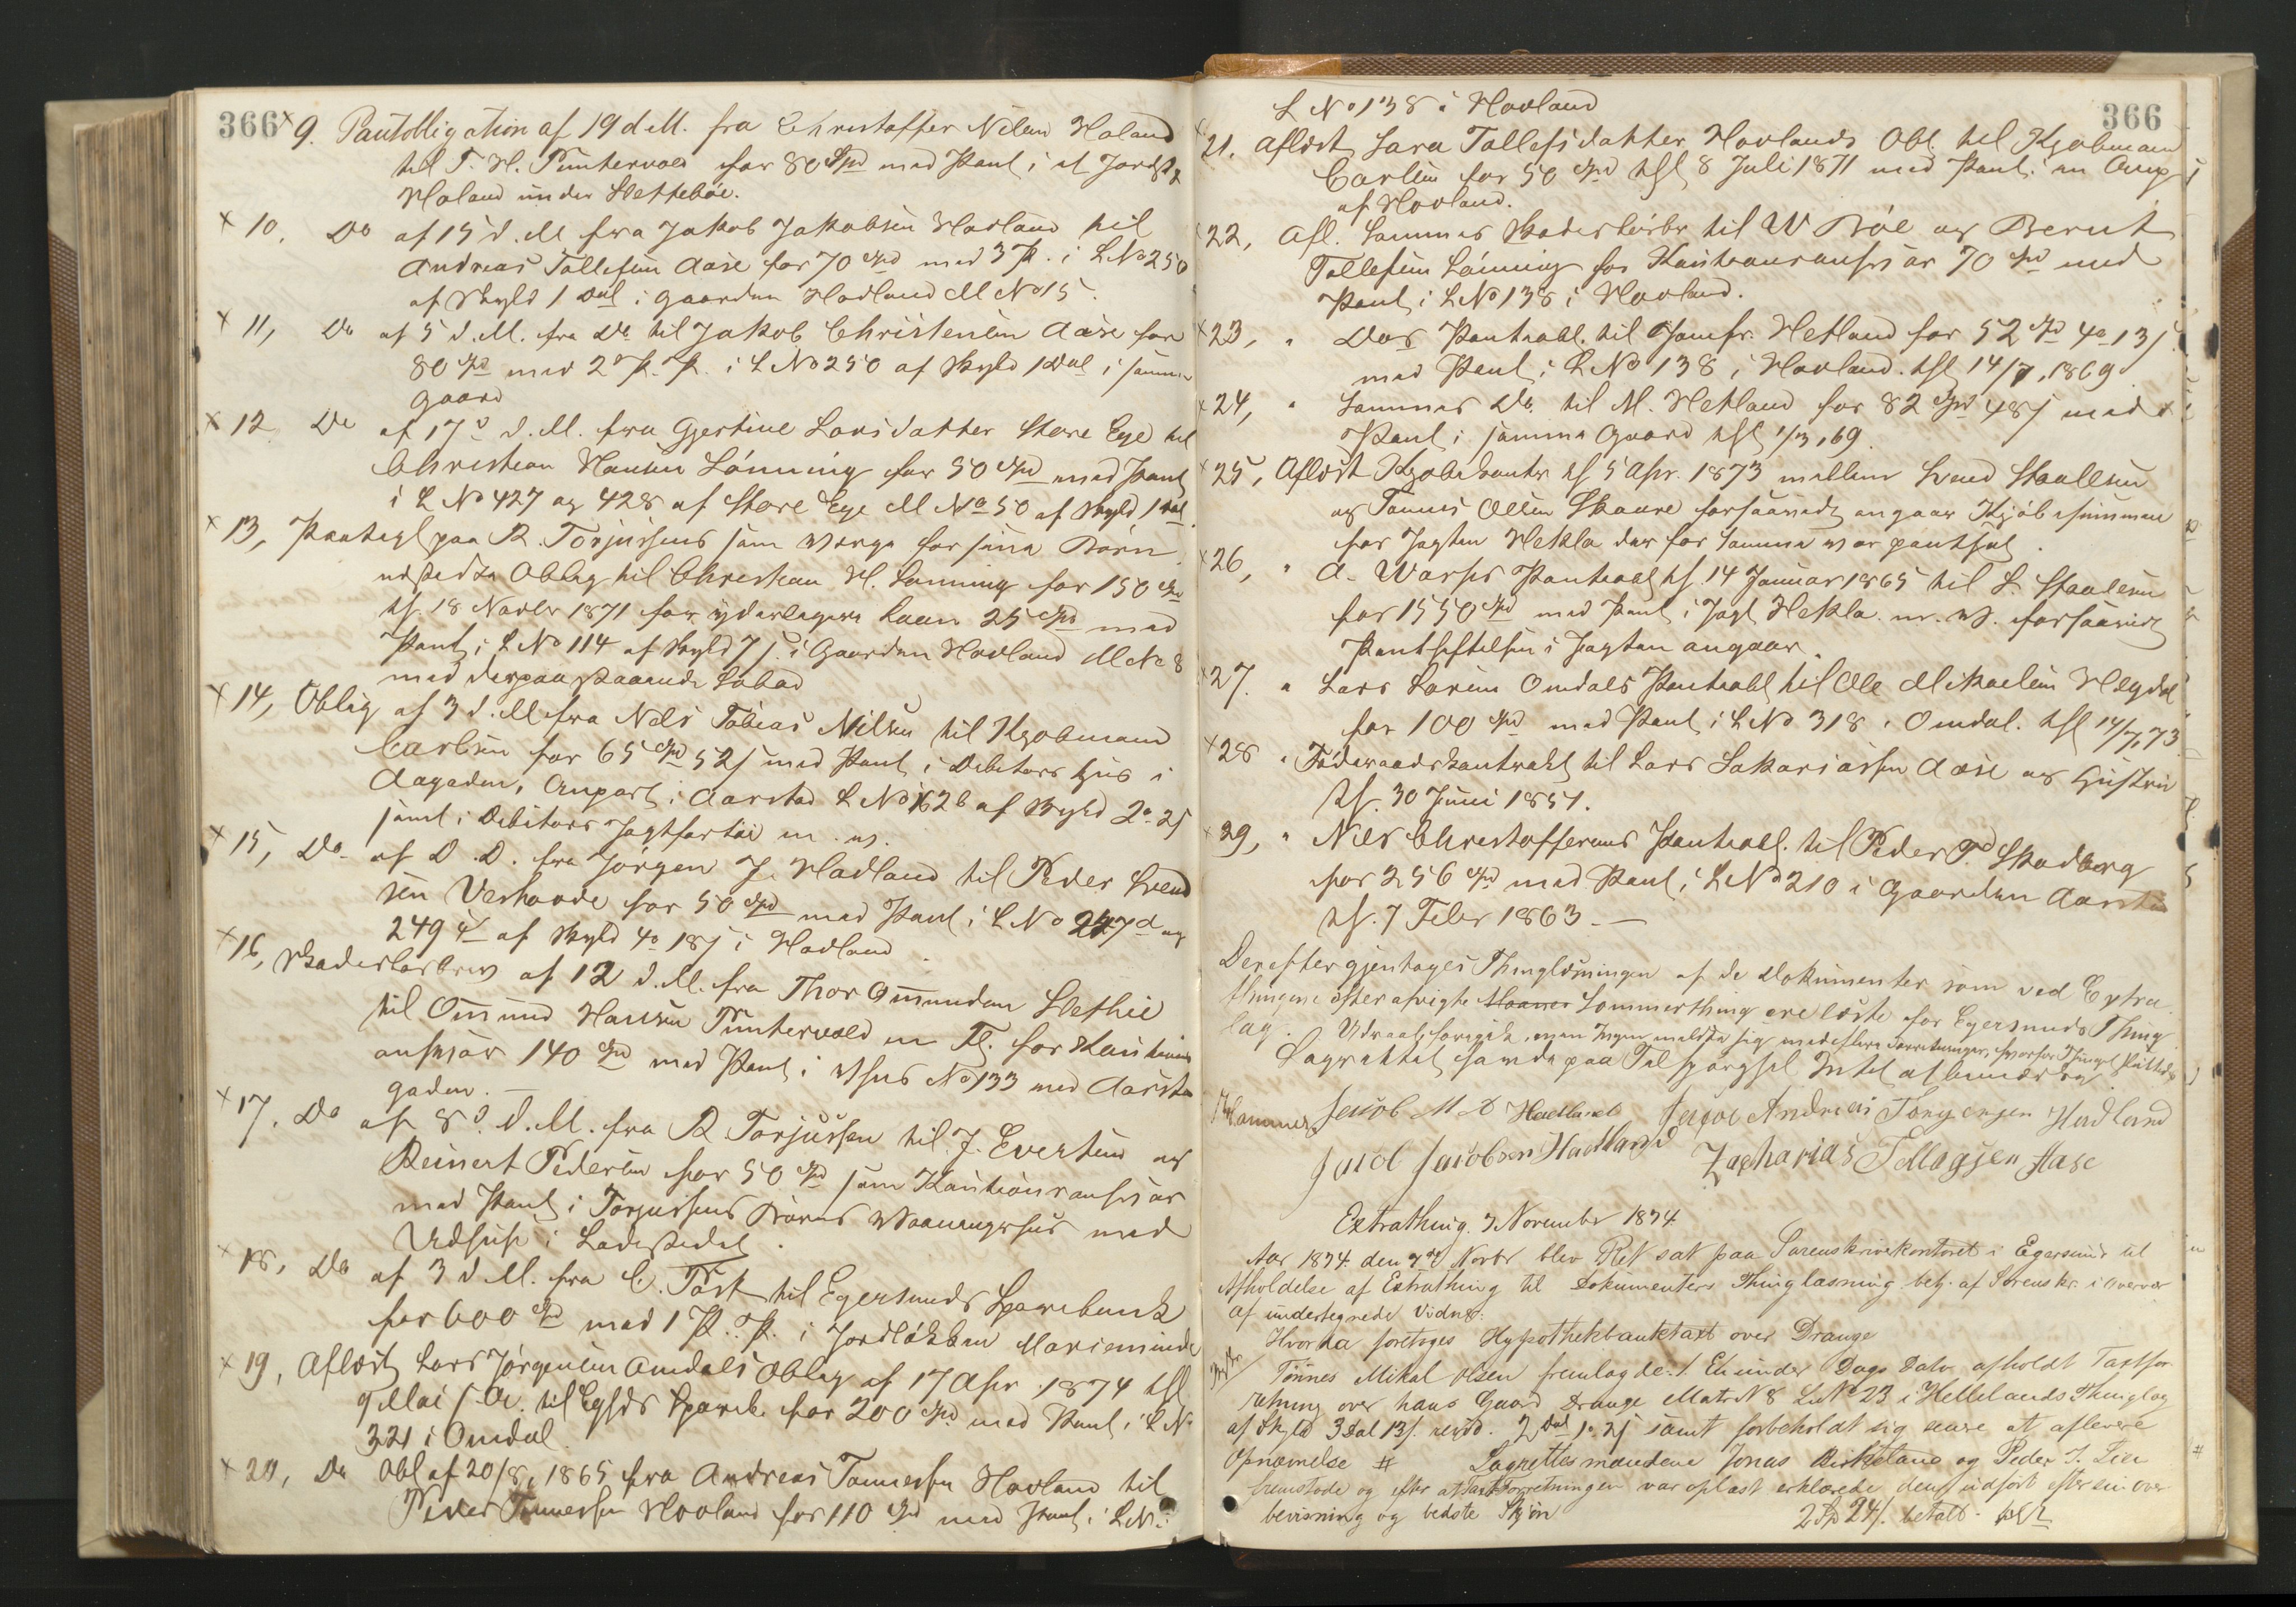 366
× 9. Pantobligation af 19 d. M. fra Christoffer Nilsen Haland
til T. H. Puntervold for 80 Spd med Pant i et Jordst
Haland under Slettebøe.
× 10, Do af 15 d. M fra Jakob Jakobsen Hadland til
Andreas Tollefsen Aase for 70 Spd med 3 P. i L No 250
af Skyld 1 Dal i Gaarden Hadland M No 15.
× 11, Do af 5 d. M. fra Do til Jakob Christensen Aase for
80 Spd med 2 P. P. i L No 250 af Skyld 1 Dal i samme
Gaard
× 12 Do af 17 d. M. fra Gjertine Larsdatter Store Ege til
Christian Hansen Lønning for 50 Spd med Pant
i L No 427 og 428 af Store Ege M No 50 af Skyld 1 Dal
× 13, Paategl paa R. Torjussens som Værge for sine Børn
udstedte Oblig til Christian H. Lønning for 150 Spd
tgl. 18 Novbr 1871 for yderligere Laan 25 Spd med
Pant i L No 114 af Skyld 7 s. i Gaarden Hadland M No 8
med derpaa staaende
× 14, Oblig af 3 d. M fra Nels Tobias Nilsen til Kjøbmand
Carlsen for 65 Spd 52 s med Pant i Debitors Hus i
Aagaden, Anpart i Aarstad L No 162 b af Skyld 2 o 2 s
samt i Debitors Jagtfartøi m. v.
× 15, Do af D. D. fra Jørgen J. Hadland til Peder Svend
sen Veshovde for 50 Spd med Pant i L No 247 d og
249 af Skyld 4 o 18 s i Hadland
× 16, Skadesløsbrev af 12 d. M. fra Thor Ommundsen Slethei
til Ommund Hansen Puntervold m Fl. for Kautions
ansvar 140 Spd med Pant i Hus No 133 ved Aarstad
gaden. —
× 17. Do af 8 d. M. fra R Torjussen til J. Evertsen og
Reinert Pedersen for 50 Spd som Kautionsansvar
med Pant i Torjussens Børns Vaaningshus med
Udhuse i Ladestedet.
× 18, Do af 3 d. M. fra C. Tørk til Egersunds Sparebank
for 600 Spd med 1 P. P. i Jordløkken Marieminde
× 19, Aflæst Lars Jørgensen Omdals Oblig af 17 Apr. 1874 tgl
9 Mai s. A. til Egsds Spareb. for 200 Spd med Pant i L No
321 i Omdal
× 20, Do Obl af 20/8, 1865 fra Andreas Tønnessen Hovland til
Peder Tønnessen Hovland for 110 Spd med Pant i L No
366
L No 138 i Hovland
× 21. Aflæst Sara Tollefsdatter Hovlands Obl. til Kjøbmand
Carlsen for 50 Spd tgl 8 Juli 1871 med Pant i en Anp
af Hovland.
22, Afl. Sammes Skadesløsbr til W Bøe og Bernt
Tollefsen Lønning for Kautionsansvar 70 Spd med
Pant i L No 138 i Hovland.
× 23, " Dos Panteobl. til Jomfr. Hetland for 52 Spd 4 o 13 s
med Pant i L No 138 i Hovland. tgl 14/7, 1869
× 24, " Sammes Do. til M. Hetland for 82 Spd 48 s med
Pant i samme Gaard tgl 1/3, 69.
× 25, Aflæst Kjøbekontr tgl 5 Apr. 1873 mellem Svend Staalesen
og Tønnis Olsen Skaare forsaavidt angaar Kjøbesummen
for Jagten Hekla der for samme var pantsat.
× 26, " A. Warps Pantobl tgl. 14 Januar 1865 til S. Staalesen
for 1550 Spd med Pant i Jagt Hekla m. v. forsaavidt
Pantheftelsen i Jagten angaar.
× 27. " Lars Larsen Omdals Panteobl til Ole Mikaelsen Hegdal
for 100 Spd med Pant i L No 318 i Omdal. tgl 14/7, 73
× 28 " Føderaadskontrakt til Lars Sakariassen Aase og Hustru
tgl. 30 Juni 1851.
× 29, " Nils Christoffersens Panteobl. til Peder Pd Skadberg
for 256 Spd med Pant i L No 210 i Gaarden Aarsta
tgl. 7 Febr 1863 —
Derefter gjentoges Thinglæsningen af de Dokumenter som ved Extra
thingene efter afvigte Sommerthing ere læste for Egersunds Thing
lag. Udraab foregik, men Ingen meldte sig med flere Forretninger, hvorfor Thinget sluttedes
Lagrettet havde paa Tilspørgsel Intet at bemærke
Hammer Jacob M A Hadland Jacob Andreas Torgersen Hadland
Jacob Jacobsen Hadland Zacharias Tollagsen Aase
Extrathing. 7 November 1874
Aar 1874 den 7de Novbr blev Ret sat paa Sorenskriverkontoret i Egersund til
Afholdelse af Extrathing til Dokumenters Thinglæsning. betj. af Sorenskr. i Overvær
af undertegnede Vidner.
Hvorda foretoges Hypothekbanktaxt over Drange
Tønnes Mikal Olsen fremlagde: 1 En under Dags Dato afholdt Taxtfor
retning over hans Gaard Drange MatrN 8 L No 23 i Hellelands Thinglag
af Skyld 3 Dal 13 s. revid. 2 Dal 1. 2 s samt forbeholdt sig senere at aflevere
Opnævnelse # Lagrettesmændene Jonas Birkeland og Peder J. Lien
fremstode og efter at Taxtforretningen var oplæst erklærede den udført efter sin over
bevisning og bedste Skjøn 2 Sp 24 s. betalt.